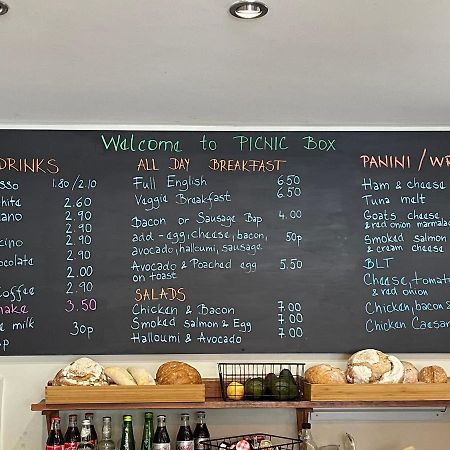 Welcome to PICNIC BOX
DRINKS
1.80/2.10
2.60
2.90
2.90
2.90
2.90
2.00
Coffee 2.90
3.50
milk 30p
ALL DAY BREAKFAST
Full English 6.50
Veggie Breakfast 6.50
Bacon or Sausage Bap 4.00
add - egg, cheese, bacon, 50p
avocado, halloumi, sausage
Avocado & Poached egg 5.50
on toast
SALADS
Chicken & Bacon 7.00
Smoked salmon & Egg 7.00
Halloumi & Avocado 7.00
PANINI / WR
Ham & cheese
Tuna melt
Goats cheese
& red onion marmalad
Smoked salmon
& cream cheese
BLT
Cheese, tomato
& red onion
Chicken, bacon &
Chicken Caesar